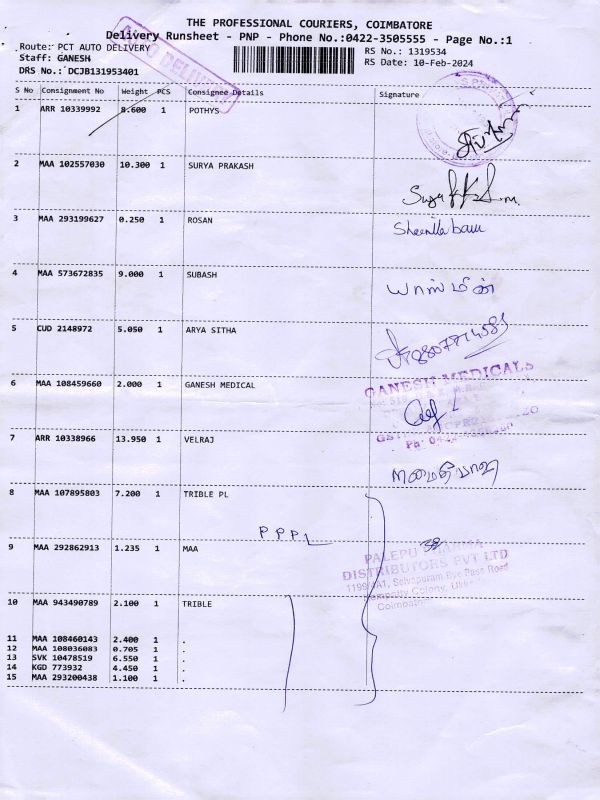 THE PROFESSIONAL COURIERS, COIMBATORE
Delivery Runsheet - PNP - Phone No.:0422-3505555 - Page No.:1
AUTO DELIVERY
Route: PCT AUTO DELIVERY
RS No.: 1319534
Staff: GANESH
RS Date: 10-Feb-2024
DRS No.: DCJB131953401
S No Consignment No Weight PCS Consignee Details Signature
1 ARR 10339992 8.600 1 POTHYS
2 MAA 102557030 10.300 1 SURYA PRAKASH
3 MAA 293199627 0.250 1 ROSAN
4 MAA 573672835 9.000 1 SUBASH
யாஸ்மீன்
5 CUD 2148972 5.050 1 ARYA SITHA
8807714583
GANESH MEDICALS
6 MAA 108459660 2.000 1 GANESH MEDICAL
7 ARR 10338966 13.950 1 VELRAJ
8 MAA 107895803 7.200 1 TRIBLE PL
PPPL
9 MAA 292862913 1.235 1 MAA
PALEPU PHARMA
DISTRIBUTORS PVT LTD
1199/1A1, Selvapuram Bye Pass Road
Colony,
Coimbatore
10 MAA 943490789 2.100 1 TRIBLE
11 MAA 108460143 2.400 1 .
12 MAA 108036083 0.705 1 .
13 SVK 10478519 6.550 1 .
14 KGD 773932 4.450 1 .
15 MAA 293200438 1.100 1 .